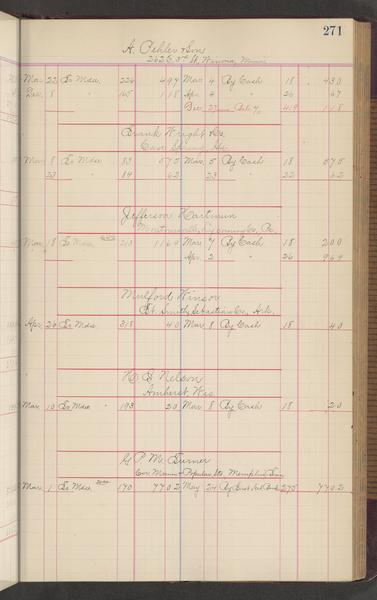 271
A. Pehler & Son
262 E 3rd St, Winona, Minn
Mar 22 To Mdse. 224 497 Mar 4 By Cash 18 430
Dec. 8 " 165 118 Apr 4 " 26 67
Dec 419 118
Frank Wright Co.
Mar 8 To Mdse. 83 575 Mar 5 By Cash 18 575
23 84 62 23 " 22 62
Jefferson Hartman
Co, Pa.
Mar 18 To Mdse 213 1169 Mar 7 By Cash 18 200
Apr. 2 " 26 969
Mulford Winsor
Ft. Smith, Sebastian Co, Ark.
Apr 26 To Mdse. 318 40 Mar. 8 By Cash 18 40
N. Nelson
Amherst, Wis.
Mar. 10 To Mdse 193 20 Mar 8 By Cash 18 20
G. P. M. Turner
Cor. Main & Poplar Sts, Memphis, Tenn
Mar 1 To Mdse 170 7702 May 24 By 275 7702